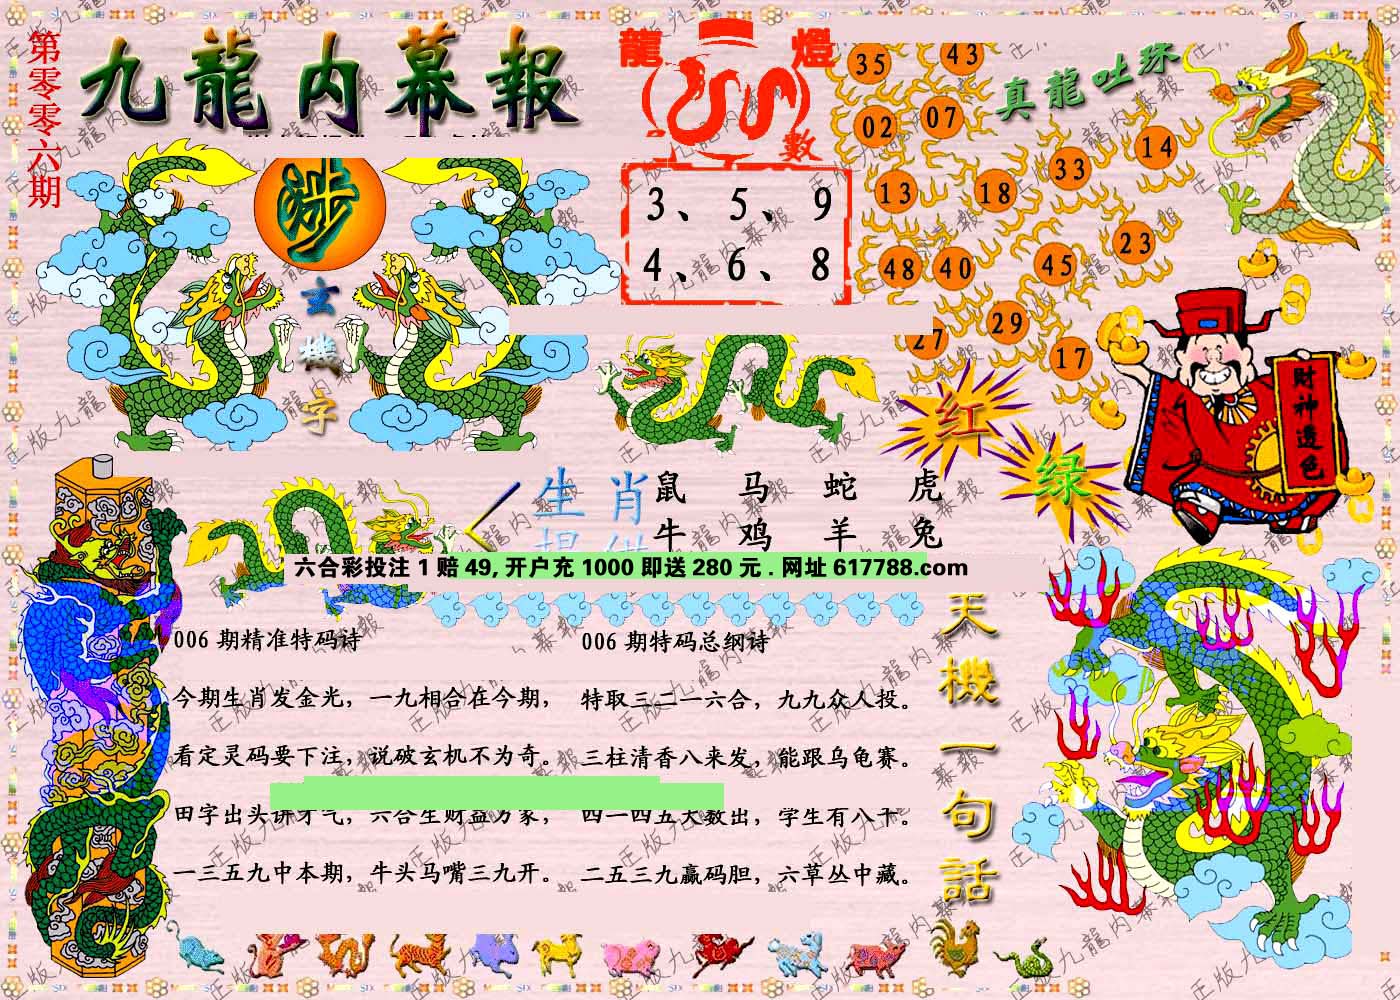 第零零六期
九龍内幕報
龍燈
數
3、5、9
4、6、8
真龍吐珠
35 43
02 07
14
33
13 18
23
48 40 45
27 29
17
玄機字
红
绿
财神透色
生肖
鼠 马 蛇 虎
牛 鸡 羊 兔
六合彩投注 1 赔 49, 开户充 1000 即送 280 元 . 网址 617788.com
006 期精准特码诗
今期生肖发金光，一九相合在今期，
看定灵码要下注，说破玄机不为奇。
田字出头讲才气，六合生财益万家，
一三五九中本期，牛头马嘴三九开。
006 期特码总纲诗
特取三二一六合，九九众人投。
三柱清香八来发，能跟乌龟赛。
四一四五大数出，学生有八十。
二五三九赢码胆，六草丛中藏。
天機一句話
正版九龍内幕報